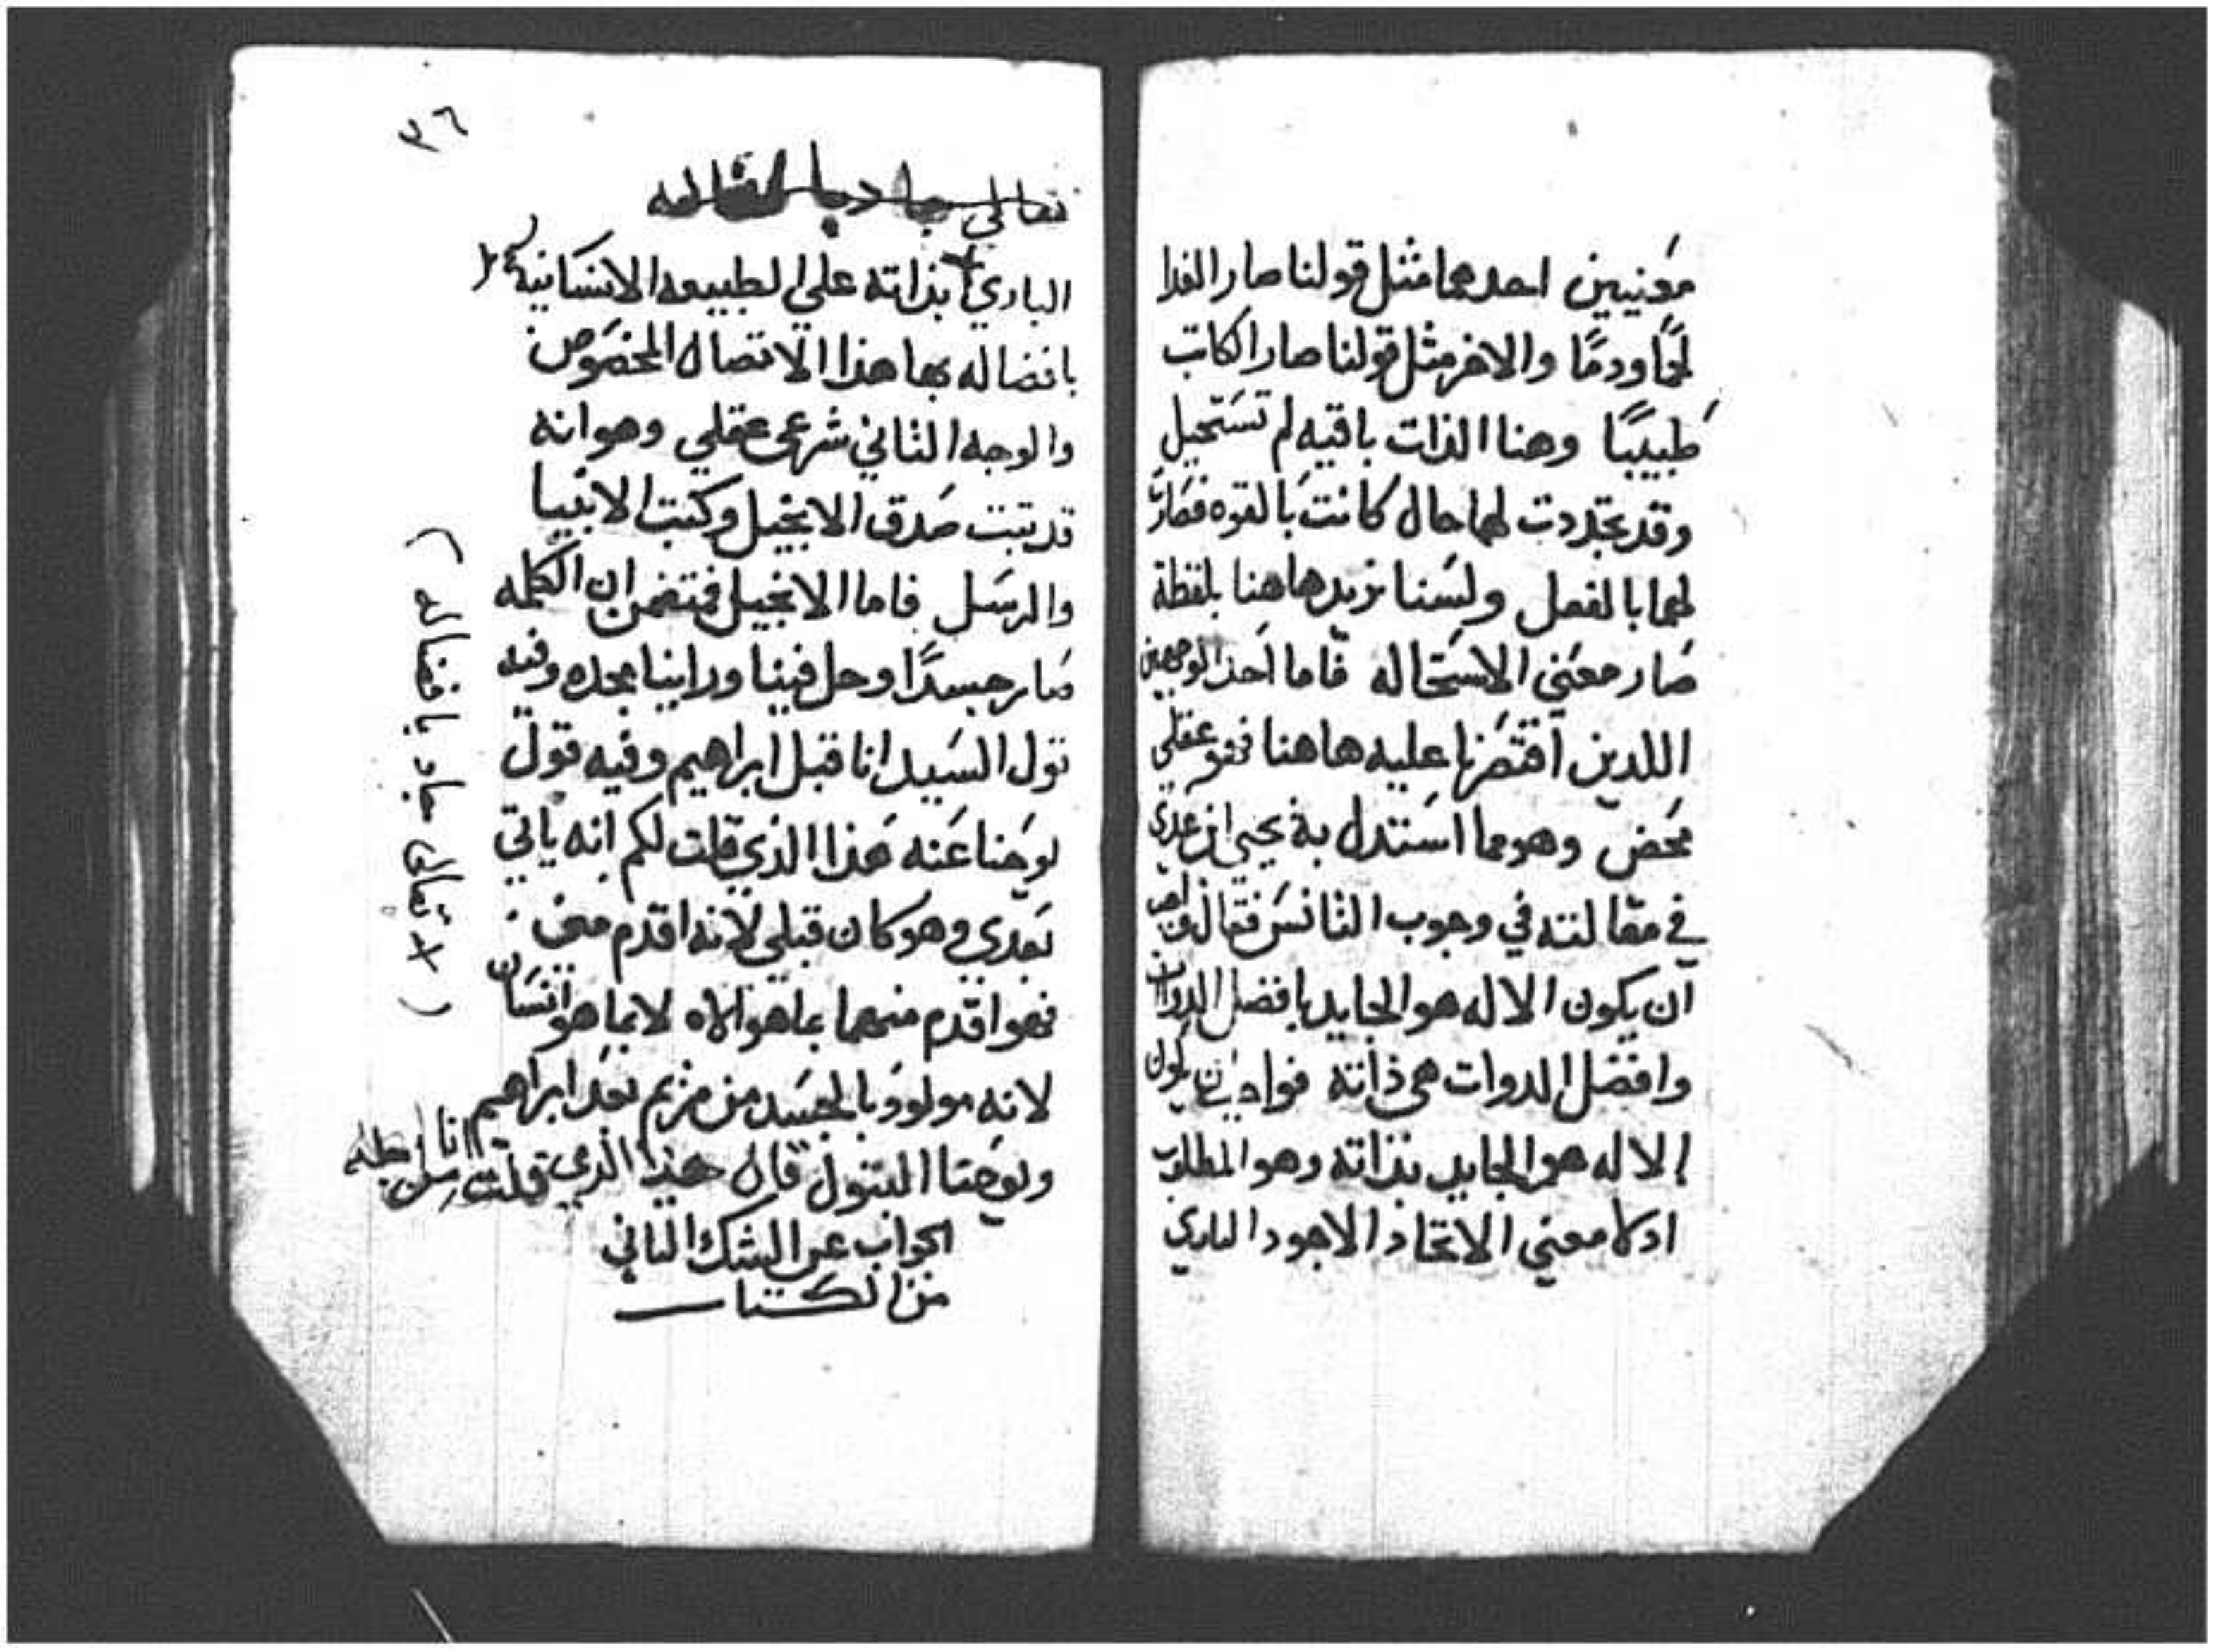 معنيين احدهما مثل قولنا صار الغدا
لحمًا ودمًا والاخر مثل قولنا صار الكاتب
طبيبًا وهنا الذات باقيه لم تستحيل
وقد تجددت لها حال كانت بالقوه فصارت
لها بالفعل ولسنا نريد هاهنا بلفظة
صار معني الاستحاله فاما احد الوجهين
اللدين اقتصرنا عليه هاهنا فهو عقلي
محض وهو مما استدل به يحيي ابن عدي
في مقالته في وجوب التانس فقال
ان يكون الاله هو الجايد بافضل الدوات
وافضل الدوات هي ذاته فواجب ان يكون
الاله هو الجايد بذاته وهو المطلوب
اد لا معني الاتحاد الا جود الباري
٣٦
تعالي جاد
الباري بذاته علي الطبيعه الانسانية
باتصاله بها هذا الاتصال المخصوص
والوجه الثاني شرعي عقلي وهو انه
قد تبت صدق الانجيل وكتب الانبيا
والرسل فاما الانجيل فتضمن ان الكلمه
صار جسدًا وحل فينا وراينا مجده وفيه
قول السيد انا قبل ابراهيم وفيه قول
يوحنا عنه هذا الذي قلت لكم انه ياتي
بعدي وهو كان قبلي لانه اقدم مني
فهو اقدم منهما بما هو الاه لا بما هو انسان
لانه مولود بالجسد من مريم بعد ابراهيم
ويوحنا البتول قال هذا الذي قلت انا
الجواب عن الشك الثاني
من الكتاب
(× تعالى جاد بافضاله)